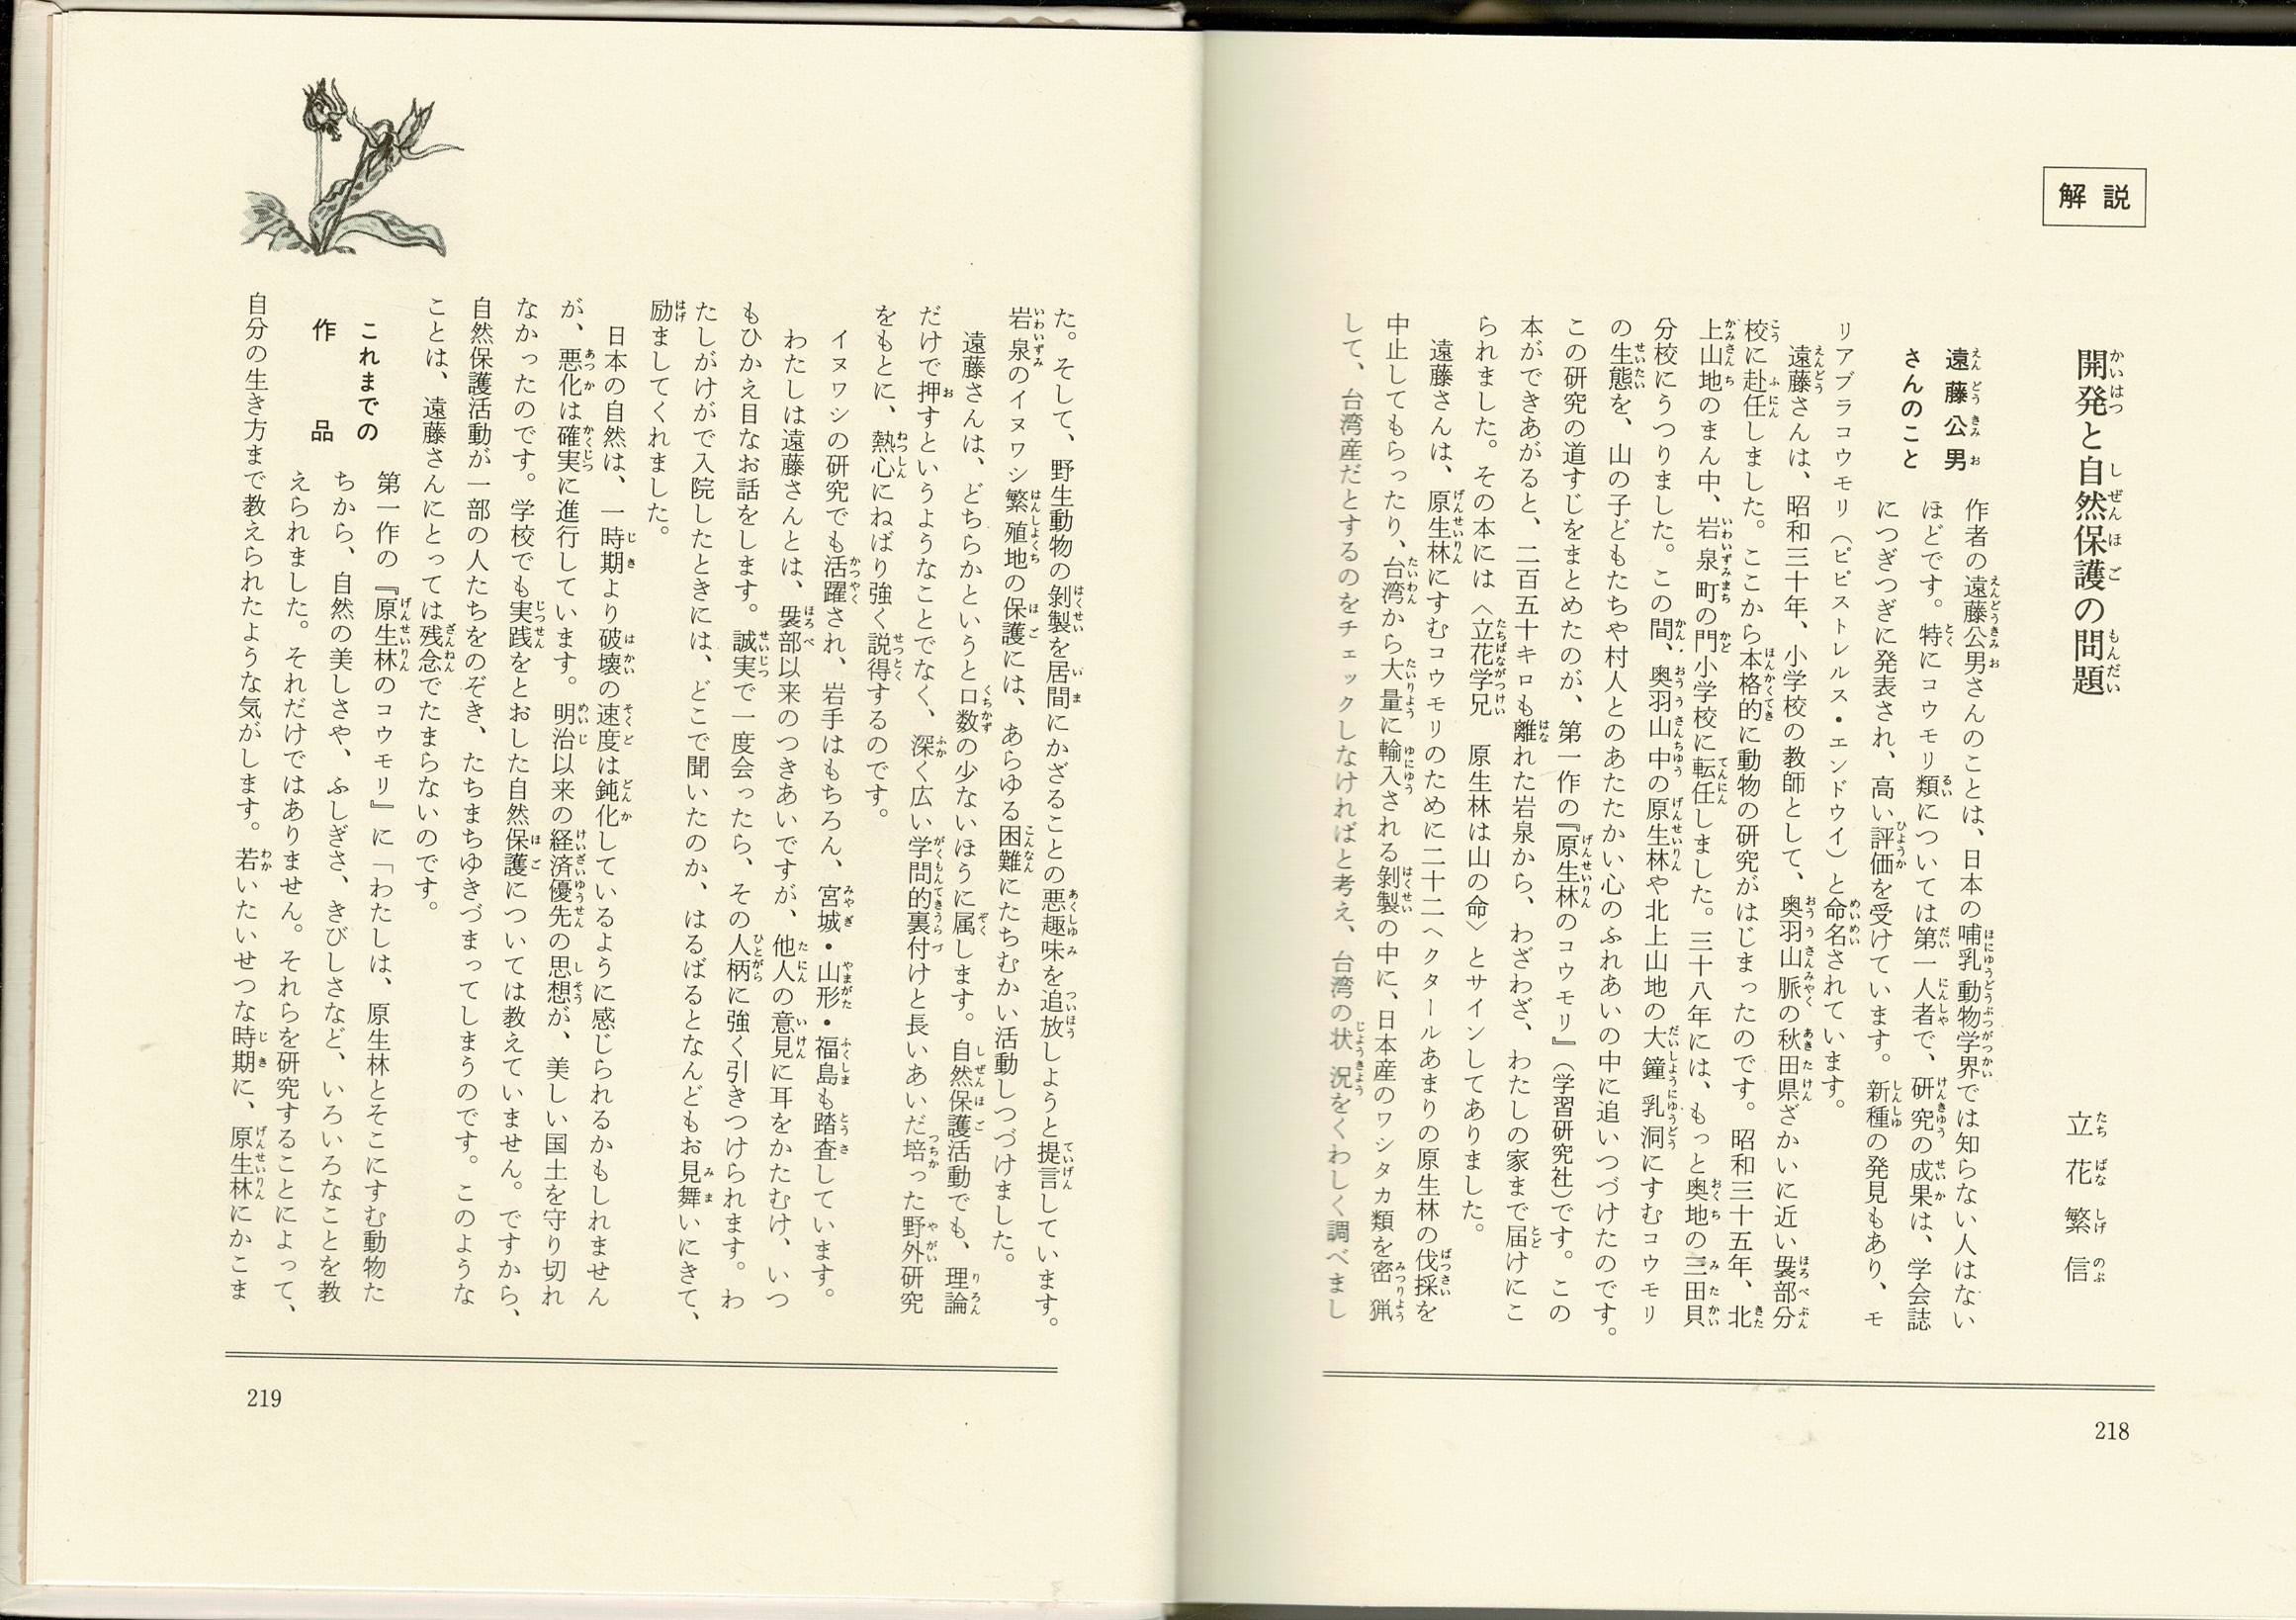 解説
開発と自然保護の問題
立花繁信
遠藤公男
さんのこと
作者の遠藤公男さんのことは、日本の哺乳動物学界では知らない人はない
ほどです。特にコウモリ類については第一人者で、研究の成果は、学会誌
につぎつぎに発表され、高い評価を受けています。新種の発見もあり、モ
リアブラコウモリ（ピピストレルス・エンドウイ）と命名されています。
遠藤さんは、昭和三十年、小学校の教師として、奥羽山脈の秋田県ざかいに近い襃部分
校に赴任しました。ここから本格的に動物の研究がはじまったのです。昭和三十五年、北
上山地のまん中、岩泉町の門小学校に転任しました。三十八年には、もっと奥地の三田貝
分校にうつりました。この間、奥羽山中の原生林や北上山地の大鐘乳洞にすむコウモリ
の生態を、山の子どもたちや村人とのあたたかい心のふれあいの中に追いつづけたのです。
この研究の道すじをまとめたのが、第一作の『原生林のコウモリ』（学習研究社）です。この
本ができあがると、二百五十キロも離れた岩泉から、わざわざ、わたしの家まで届けにこ
られました。その本には〈立花学兄　原生林は山の命〉とサインしてありました。
遠藤さんは、原生林にすむコウモリのために二十二ヘクタールあまりの原生林の伐採を
中止してもらったり、台湾から大量に輸入される剝製の中に、日本産のワシタカ類を密猟
して、台湾産だとするのをチェックしなければと考え、台湾の状況をくわしく調べまし
218
た。そして、野生動物の剝製を居間にかざることの悪趣味を追放しようと提言しています。
岩泉のイヌワシ繁殖地の保護には、あらゆる困難にたちむかい活動しつづけました。
遠藤さんは、どちらかというと口数の少ないほうに属します。自然保護活動でも、理論
だけで押すというようなことでなく、深く広い学問的裏付けと長いあいだ培った野外研究
をもとに、熱心にねばり強く説得するのです。
イヌワシの研究でも活躍され、岩手はもちろん、宮城・山形・福島も踏査しています。
わたしは遠藤さんとは、襃部以来のつきあいですが、他人の意見に耳をかたむけ、いつ
もひかえ目なお話をします。誠実で一度会ったら、その人柄に強く引きつけられます。わ
たしがけがで入院したときには、どこで聞いたのか、はるばるとなんどもお見舞いにきて、
励ましてくれました。
日本の自然は、一時期より破壊の速度は鈍化しているように感じられるかもしれません
が、悪化は確実に進行しています。明治以来の経済優先の思想が、美しい国土を守り切れ
なかったのです。学校でも実践をとおした自然保護については教えていません。ですから、
自然保護活動が一部の人たちをのぞき、たちまちゆきづまってしまうのです。このような
ことは、遠藤さんにとっては残念でたまらないのです。
これまでの
作品
第一作の『原生林のコウモリ』に「わたしは、原生林とそこにすむ動物た
ちから、自然の美しさや、ふしぎさ、きびしさなど、いろいろなことを教
えられました。それだけではありません。それらを研究することによって、
自分の生き方まで教えられたような気がします。若いたいせつな時期に、原生林にかこま
219